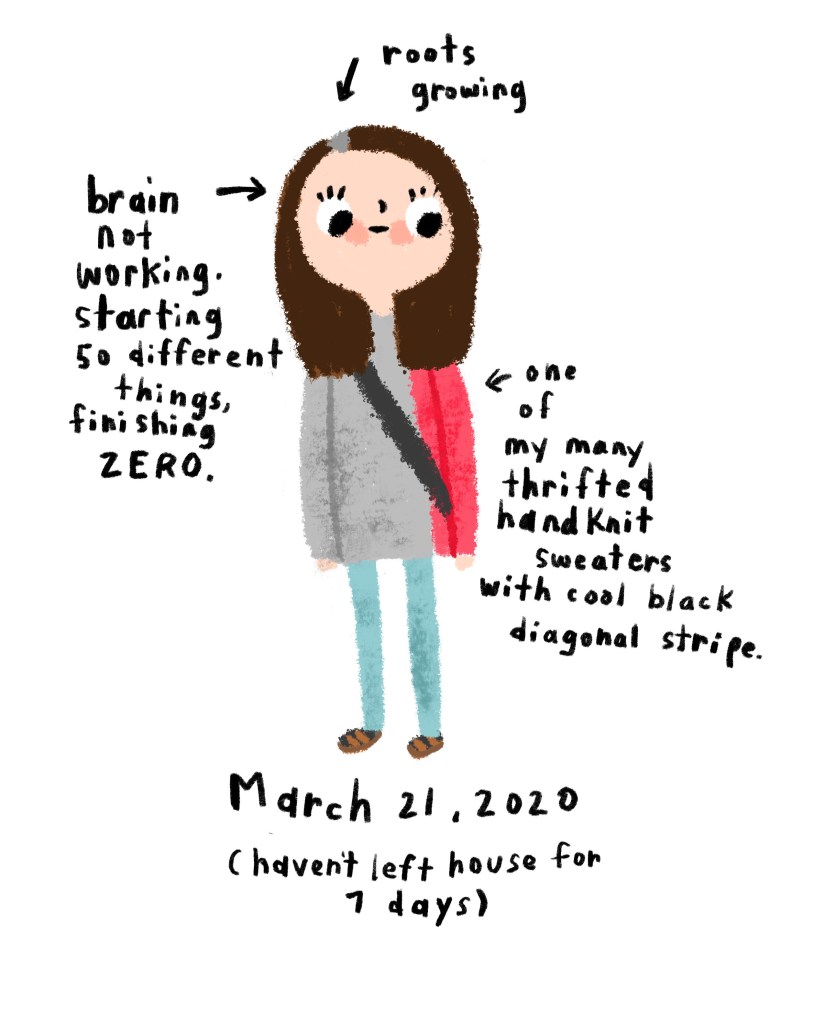 roots
growing
brain
not
working.
starting
50 different
things,
finishing
ZERO.
one
of
my many
thrifted
handknit
sweaters
with cool black
diagonal stripe.
March 21, 2020
(haven't left house for
7 days)